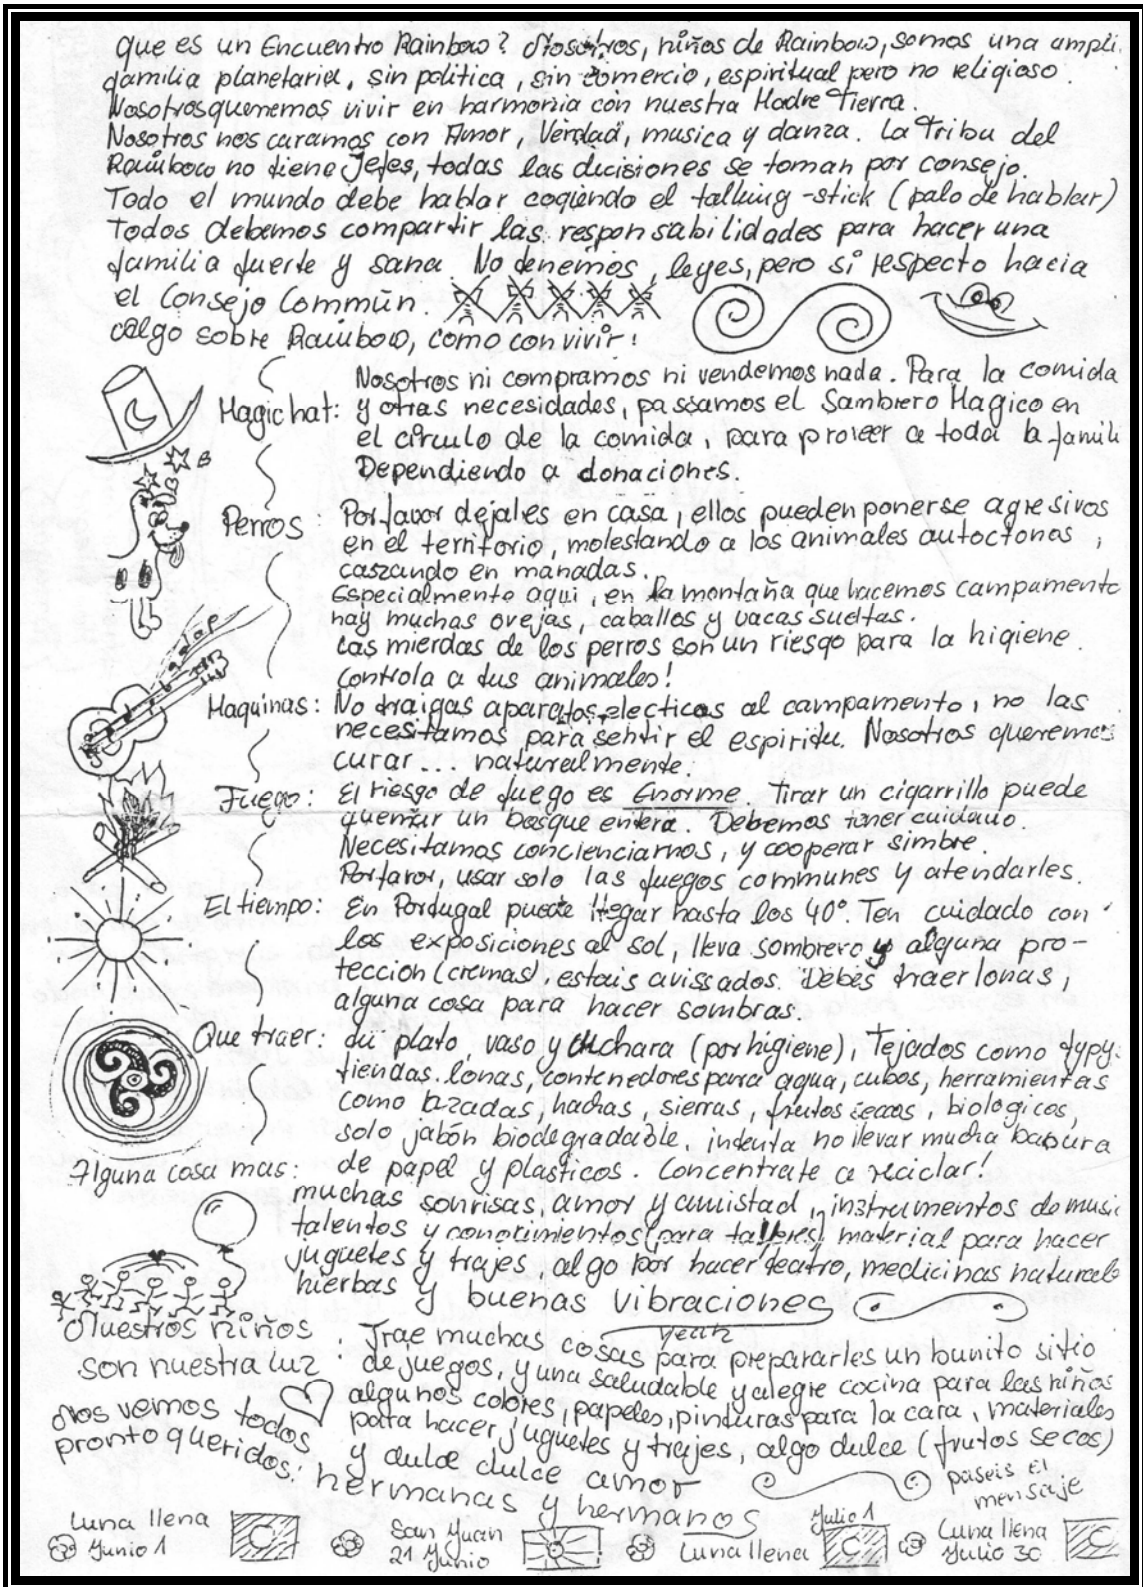 que es un Encuentro Rainbow? Nosotros, niños de Rainbow, somos una ampli
familia planetaria, sin politica, sin comercio, espiritual pero no religioso.
Nosotros queremos vivir en harmonia con nuestra Madre Tierra.
Nosotros nos curamos con Amor, Verdad, musica y danza. La Tribu del
Rainbow no tiene Jefes, todas las dicisiones se toman por consejo.
Todo el mundo debe hablar cogiendo el talking-stick (palo de hablar)
Todos debemos compartir las responsabilidades para hacer una
familia fuerte y sana. No tenemos leyes, pero si respecto hacia
el Consejo Commün.
algo sobre Rainbow, como convivir!
Nosotros ni compramos ni vendemos nada. Para la comida
Magic hat: y otras necesidades, passamos el Sambrero Magico en
el circulo de la comida, para proveer a toda la famili
Dependiendo a donaciones.
Perros: Porfavor dejales en casa, ellos pueden ponerse agresivos
en el territorio, molestando a los animales autoctonos,
caszando en manadas.
Especialmente aqui, en la montaña que hacemos campamento
hay muchas ovejas, caballos y vacas sueltas.
Las mierdas de los perros son un riesgo para la higiene.
Controla a tus animales!
Maquinas: No traigas aparatos electicos al campamento, no las
necesitamos para sentir el espiritu. Nosotros queremos
curar... naturalmente.
Fuego: El riesgo de fuego es Enorme. Tirar un cigarrillo puede
quemar un bosque entera. Debemos tener cuidado.
Necesitamos concienciarnos, y cooperar simbre.
Porfavor, usar solo las fuegos communes y atendarles.
El tiempo: En Portugal puede llegar hasta los 40° Ten cuidado con
los exposiciones al sol, lleva sombrero y alguna pro-
teccion (cremas) estais avissados. Debes traer lonas,
alguna cosa para hacer sombras.
Que traer: tu plato, vaso y cuchara (por higiene), Tejados como typy
tiendas. lonas, contenedores para agua, cubos, herramientas
como azadas, hachas, sierras, frutos secos, biologicos,
solo jabón biodegradable, intenta no llevar mucha basura
de papel y plasticos. Concentrate a reciclar!
Alguna cosa mas:
muchas sonrisas, amor y amistad, instrumentos de music
talentos y conocimientos (para talleres) material para hacer
juguetes y trajes, algo por hacer teatro, medicinas naturale
hierbas y buenas vibraciones
yeah
Nuestros niños
son nuestra luz
: Trae muchas cosas para prepararles un bunito sitio
de juegos, y una saludable y alegre cocina para las niños
algunos colores, papeles, pinturas para la cara, materiales
para hacer juguetes y trajes, algo dulce (frutos secos)
y dulce dulce amor
Nos vemos todos
pronto queridos: hermanas y hermanos
paseis El
mensaje
Luna llena
Junio 1
San Juan
21 Junio
Julio 1
Luna llena
Luna llena
Julio 30